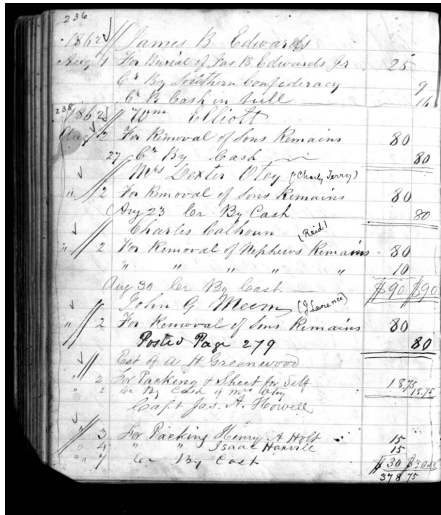 236
1862 James B. Edwards
Aug 1 For Burial of Jas B Edwards Jr 25
Cr By Southern Confederacy 9
Cr By Cash in full 16
238 1862 Wm Elliott
Aug 2 For Removal of Sons Remains 80
27 Cr By Cash 80
Mrs Dexter Otey (Charly Terry)
" 2 For Removal of Sons Remains 80
Aug 23 Cr By Cash 80
Charles Calhoun (Reid)
" 2 For Removal of Nephews Remains 80
" " " " " 10
Aug 30 Cr By Cash $90 $90
John G Meem (J Larence)
" 2 For Removal of Sons Remains 80
Posted Page 279 80
Est of A H Greenwood
" 2 For Packing & Sheet for Self 18.75
" 2 Cr By Cash of Mrs Otey 18.75
Capt Jas. A. Howell
" 3 For Packing Henry A Holt 15
" 4 " " Isaac 15
" 7 Cr By Cash $30
378 75